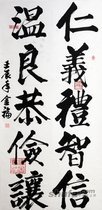 仁義禮智信
溫良恭儉讓
壬辰年金福